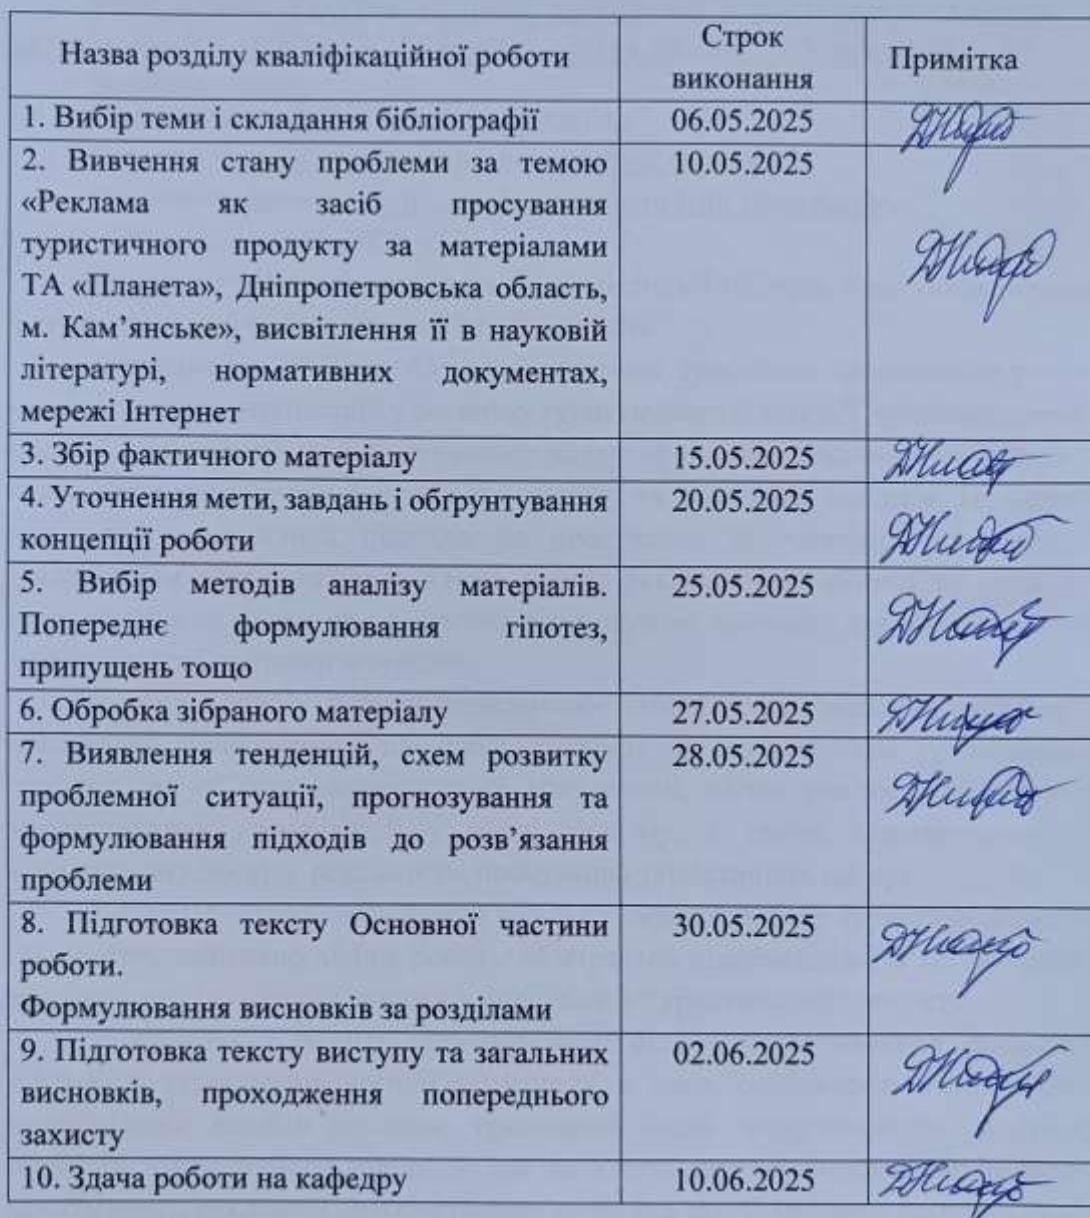 Назва розділу кваліфікаційної роботи
Строк
виконання
Примітка
1. Вибір теми і складання бібліографії
06.05.2025
2. Вивчення стану проблеми за темою
10.05.2025
«Реклама як засіб просування
туристичного продукту за матеріалами
ТА «Планета», Дніпропетровська область,
м. Кам’янське», висвітлення її в науковій
літературі, нормативних документах,
мережі Інтернет
3. Збір фактичного матеріалу
15.05.2025
4. Уточнення мети, завдань і обґрунтування
20.05.2025
концепції роботи
5. Вибір методів аналізу матеріалів.
25.05.2025
Попереднє формулювання гіпотез,
припущень тощо
6. Обробка зібраного матеріалу
27.05.2025
7. Виявлення тенденцій, схем розвитку
28.05.2025
проблемної ситуації, прогнозування та
формулювання підходів до розв’язання
проблеми
8. Підготовка тексту Основної частини
30.05.2025
роботи.
Формулювання висновків за розділами
9. Підготовка тексту виступу та загальних
02.06.2025
висновків, проходження попереднього
захисту
10. Здача роботи на кафедру
10.06.2025